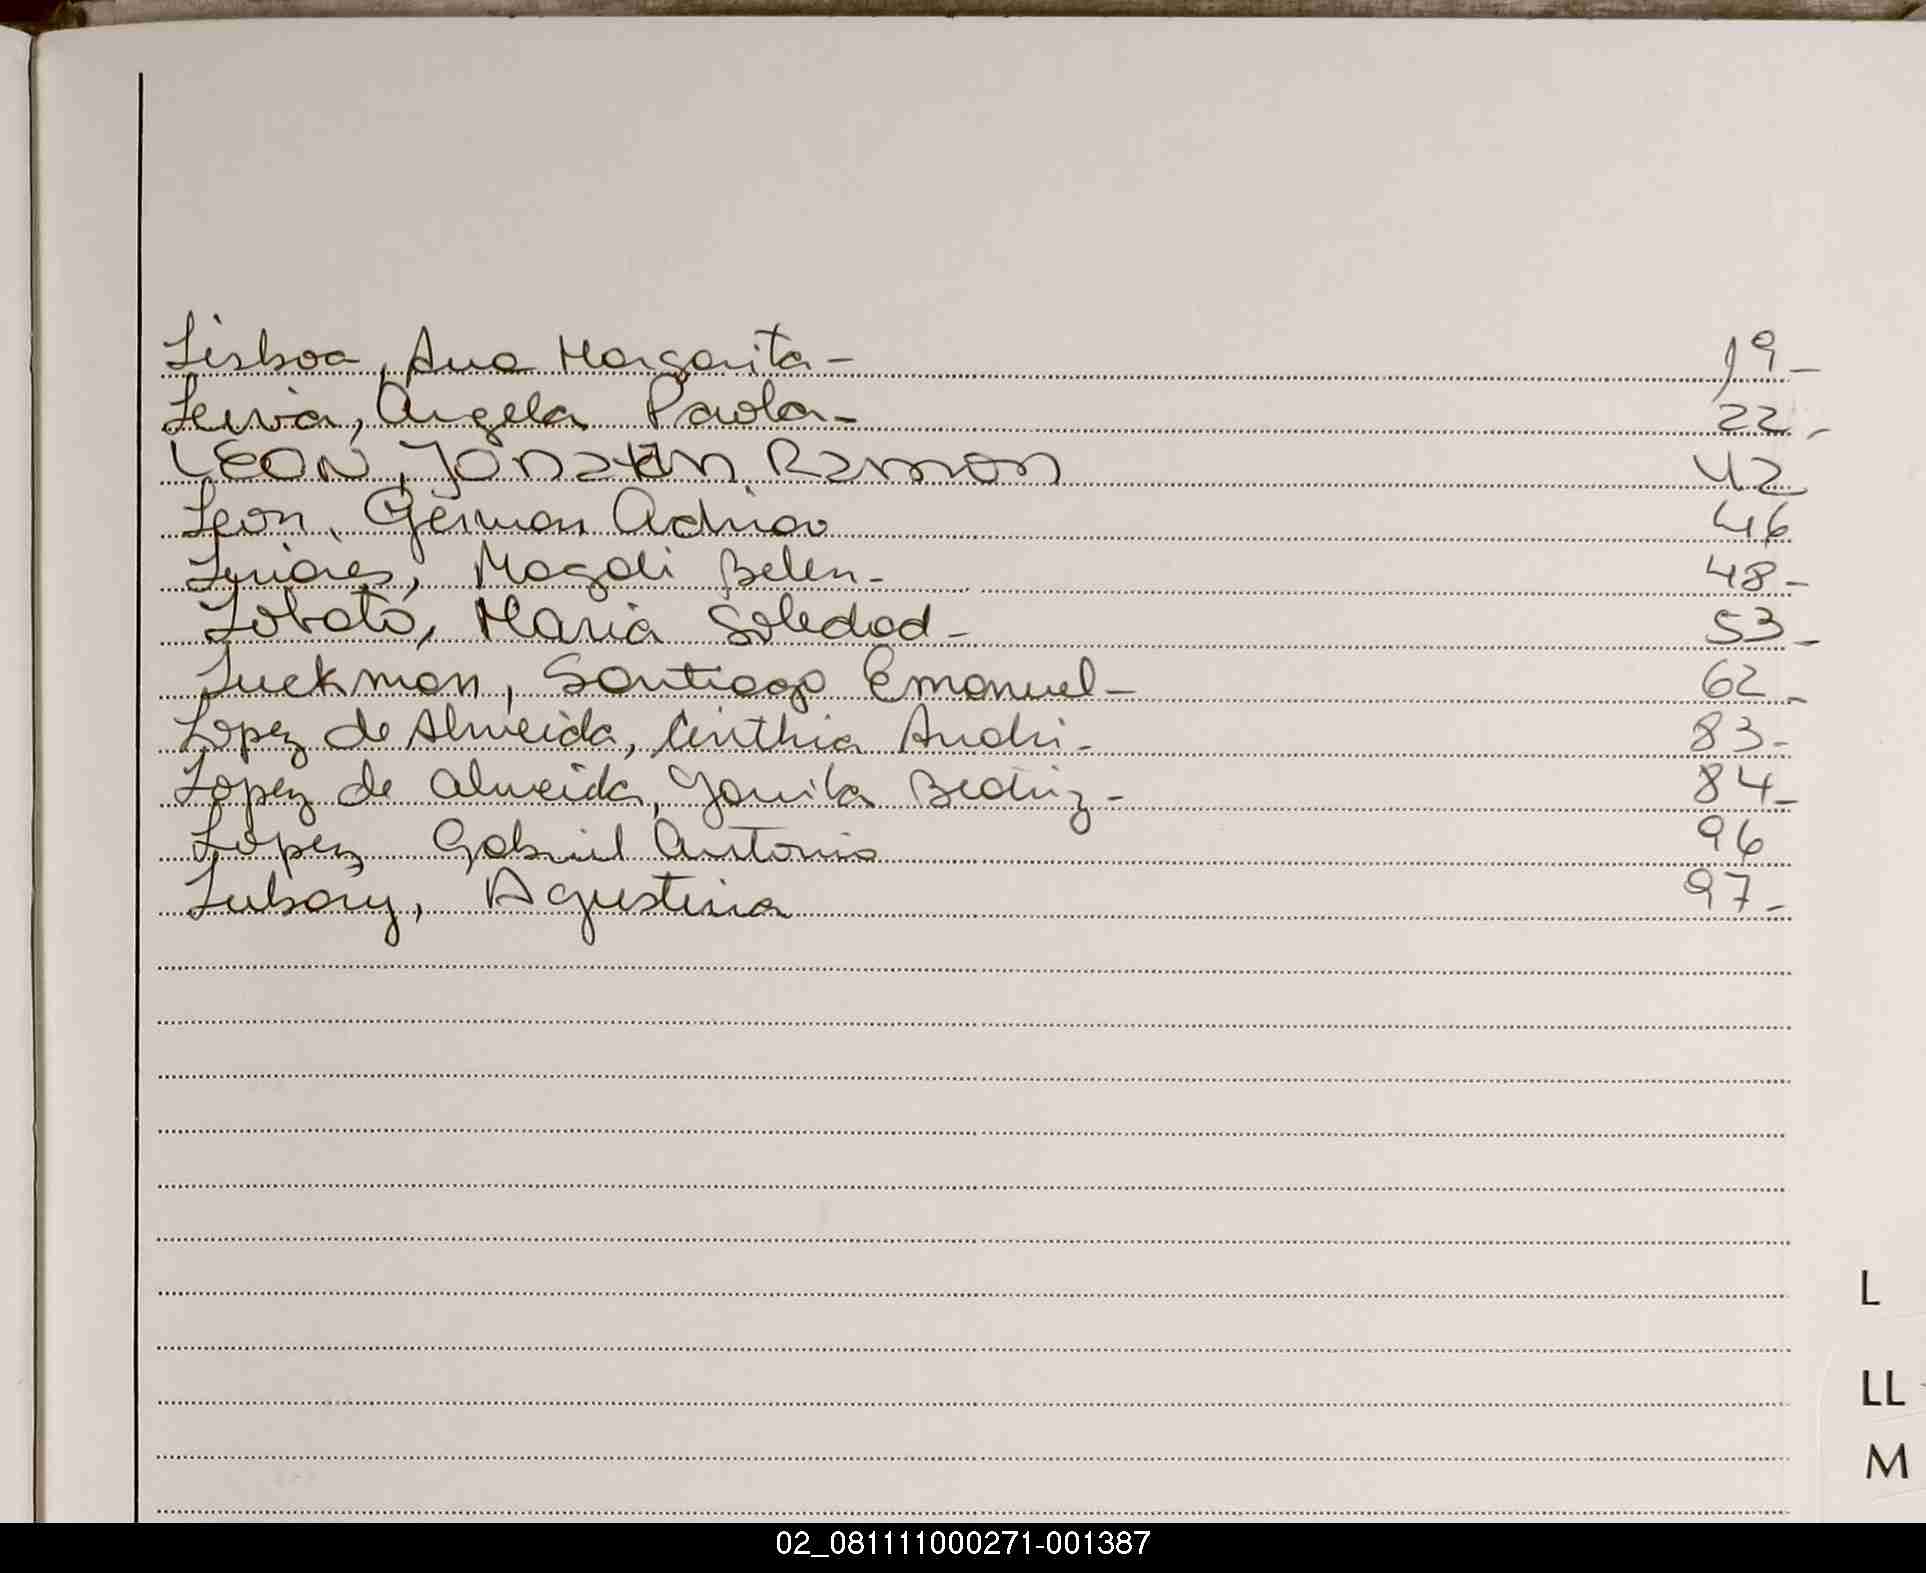 Lisboa, Ana Margarita - 19 -
Leiva, Angela Paola - 22 -
LEON, JONatan Ramon 42
Leon, German Adrian 46
Magali Belen - 48 -
Lobato, Maria Soledad - 53 -
Luckman, Santiago Emanuel - 62 -
Lopez de Almeida, Cinthia Andri - 83 -
Lopez de Almeida, Beatriz - 84 -
Lopez Gabriel Antonio 96
Agustina 97 -
L
LL
M
02_081111000271-001387